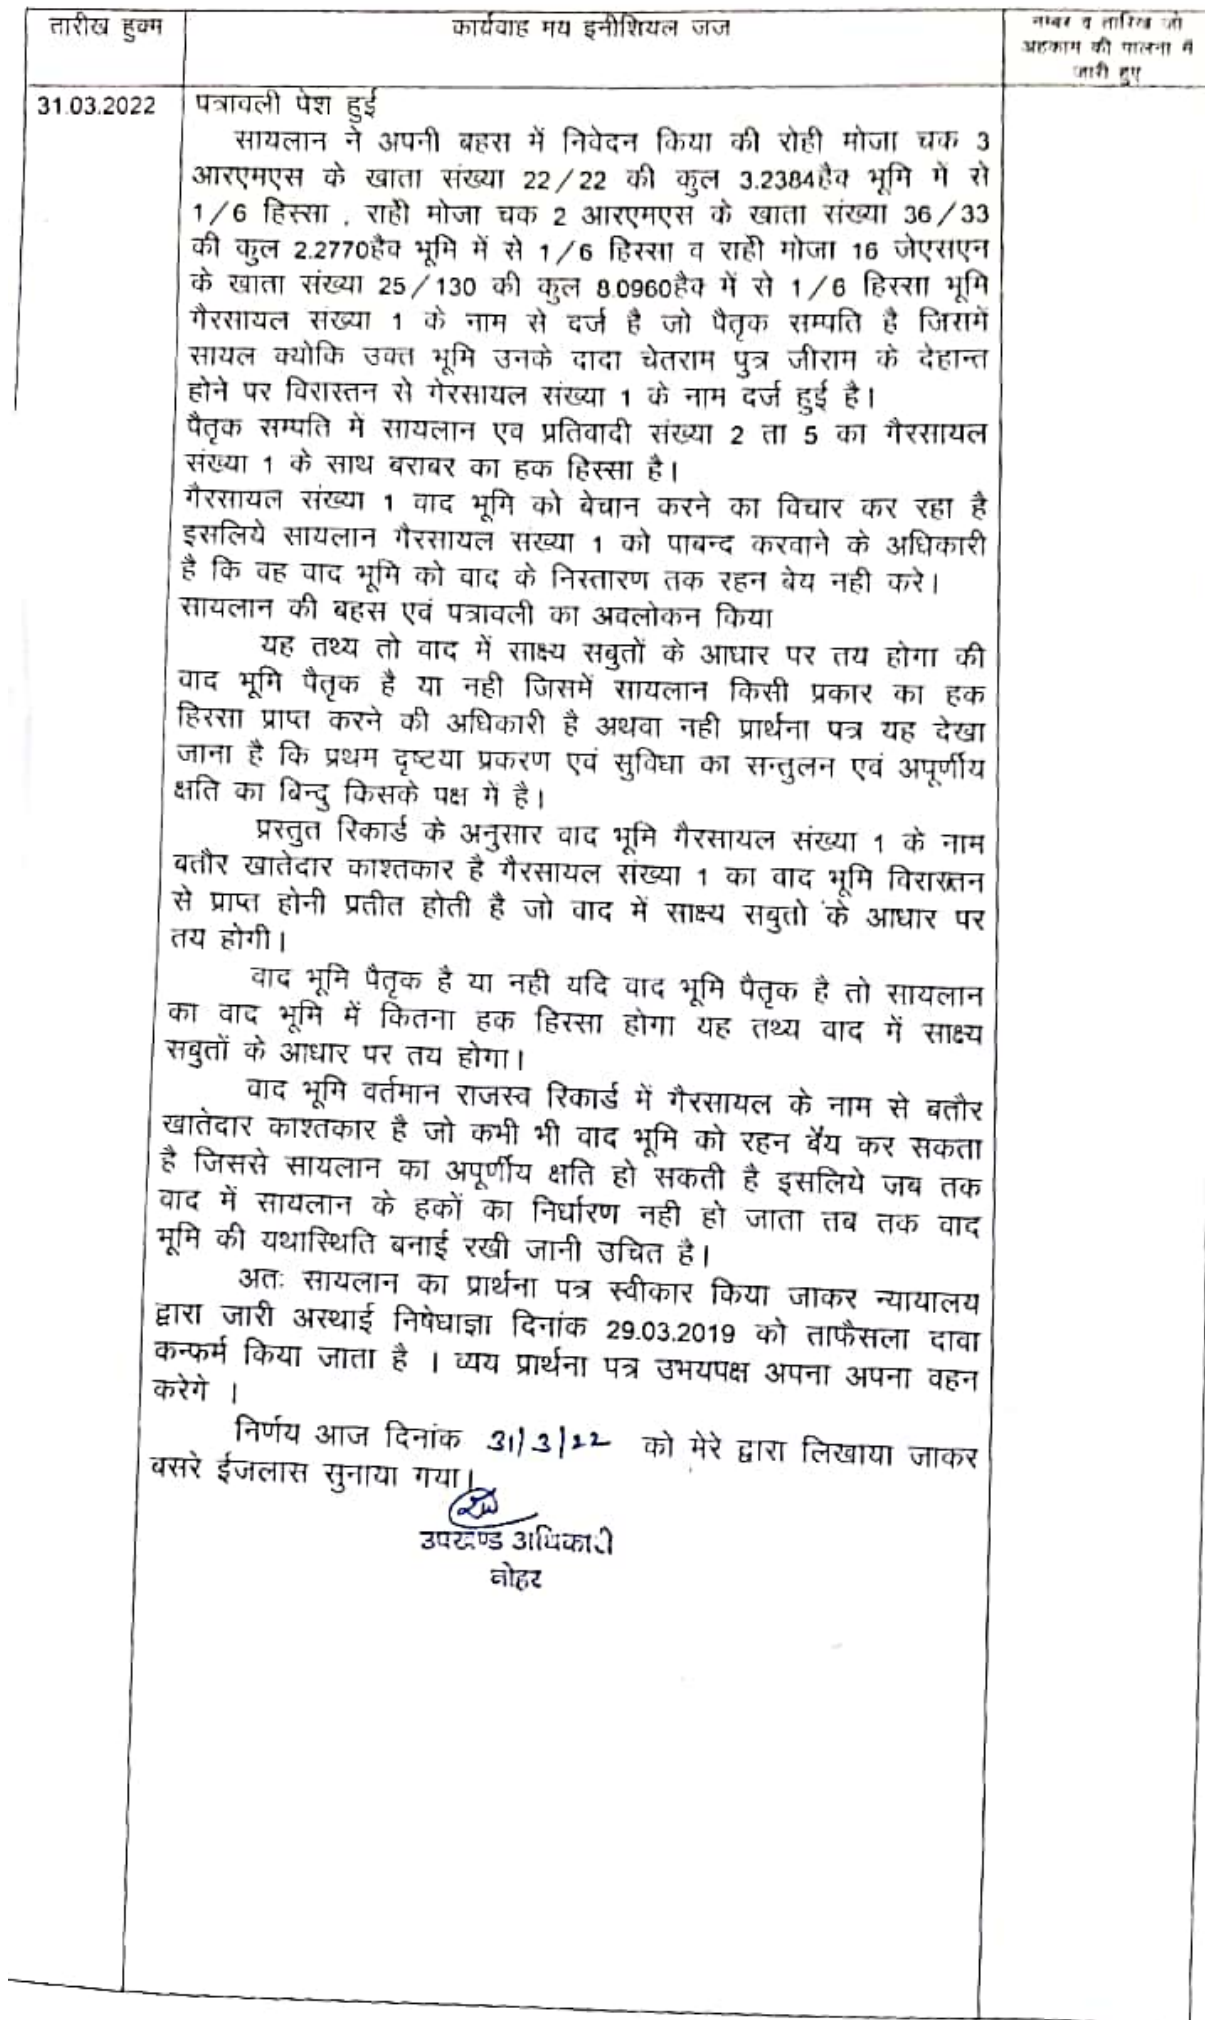 तारीख हुक्म
कार्यवाह मय इनीशियल जज
नम्बर व तारिख जो
अहकाम की पालना में
जारी हुए
31.03.2022
पत्रावली पेश हुई
सायलान ने अपनी बहस में निवेदन किया की रोही मोजा चक 3
आरएमएस के खाता संख्या 22/22 की कुल 3.2384हैव भूमि में से
1/6 हिस्सा , राही मोजा चक 2 आरएमएस के खाता संख्या 36/33
की कुल 2.2770हैव भूमि में से 1/6 हिस्सा व राही मोजा 16 जेएसएन
के खाता संख्या 25/130 की कुल 8.0960हैव में से 1/6 हिस्सा भूमि
गैरसायल संख्या 1 के नाम से दर्ज है जो पैतृक सम्पति है जिसमें
सायल क्योकि उक्त भूमि उनके दादा चेतराम पुत्र जीराम के देहान्त
होने पर विरास्तन से गेरसायल संख्या 1 के नाम दर्ज हुई है।
पैतृक सम्पति में सायलान एव प्रतिवादी संख्या 2 ता 5 का गैरसायल
संख्या 1 के साथ बराबर का हक हिस्सा है।
गैरसायल संख्या 1 वाद भूमि को बेचान करने का विचार कर रहा है
इसलिये सायलान गैरसायल संख्या 1 को पाबन्द करवाने के अधिकारी
है कि वह वाद भूमि को वाद के निस्तारण तक रहन बेय नही करे।
सायलान की बहस एवं पत्रावली का अवलोकन किया
यह तथ्य तो वाद में साक्ष्य सबुतों के आधार पर तय होगा की
वाद भूमि पैतृक है या नही जिसमें सायलान किसी प्रकार का हक
हिस्सा प्राप्त करने की अधिकारी है अथवा नही प्रार्थना पत्र यह देखा
जाना है कि प्रथम दृष्टया प्रकरण एवं सुविधा का सन्तुलन एवं अपूर्णीय
क्षति का बिन्दु किसके पक्ष में है।
प्रस्तुत रिकार्ड के अनुसार वाद भूमि गैरसायल संख्या 1 के नाम
बतौर खातेदार काश्तकार है गैरसायल संख्या 1 का वाद भूमि विरास्तन
से प्राप्त होनी प्रतीत होती है जो वाद में साक्ष्य सबुतो के आधार पर
तय होगी।
वाद भूमि पैतृक है या नही यदि वाद भूमि पैतृक है तो सायलान
का वाद भूमि में कितना हक हिस्सा होगा यह तथ्य वाद में साक्ष्य
सबुतों के आधार पर तय होगा।
वाद भूमि वर्तमान राजस्व रिकार्ड में गैरसायल के नाम से बतौर
खातेदार काश्तकार है जो कभी भी वाद भूमि को रहन बैय कर सकता
है जिससे सायलान का अपूर्णीय क्षति हो सकती है इसलिये जब तक
वाद में सायलान के हकों का निर्धारण नही हो जाता तब तक वाद
भूमि की यथास्थिति बनाई रखी जानी उचित है।
अतः सायलान का प्रार्थना पत्र स्वीकार किया जाकर न्यायालय
द्वारा जारी अस्थाई निषेधाज्ञा दिनांक 29.03.2019 को ताफैसला दावा
कन्फर्म किया जाता है । व्यय प्रार्थना पत्र उभयपक्ष अपना अपना वहन
करेगे ।
निर्णय आज दिनांक 31/3/22 को मेरे द्वारा लिखाया जाकर
बसरे ईजलास सुनाया गया।
उपखण्ड अधिकारी
नोहर